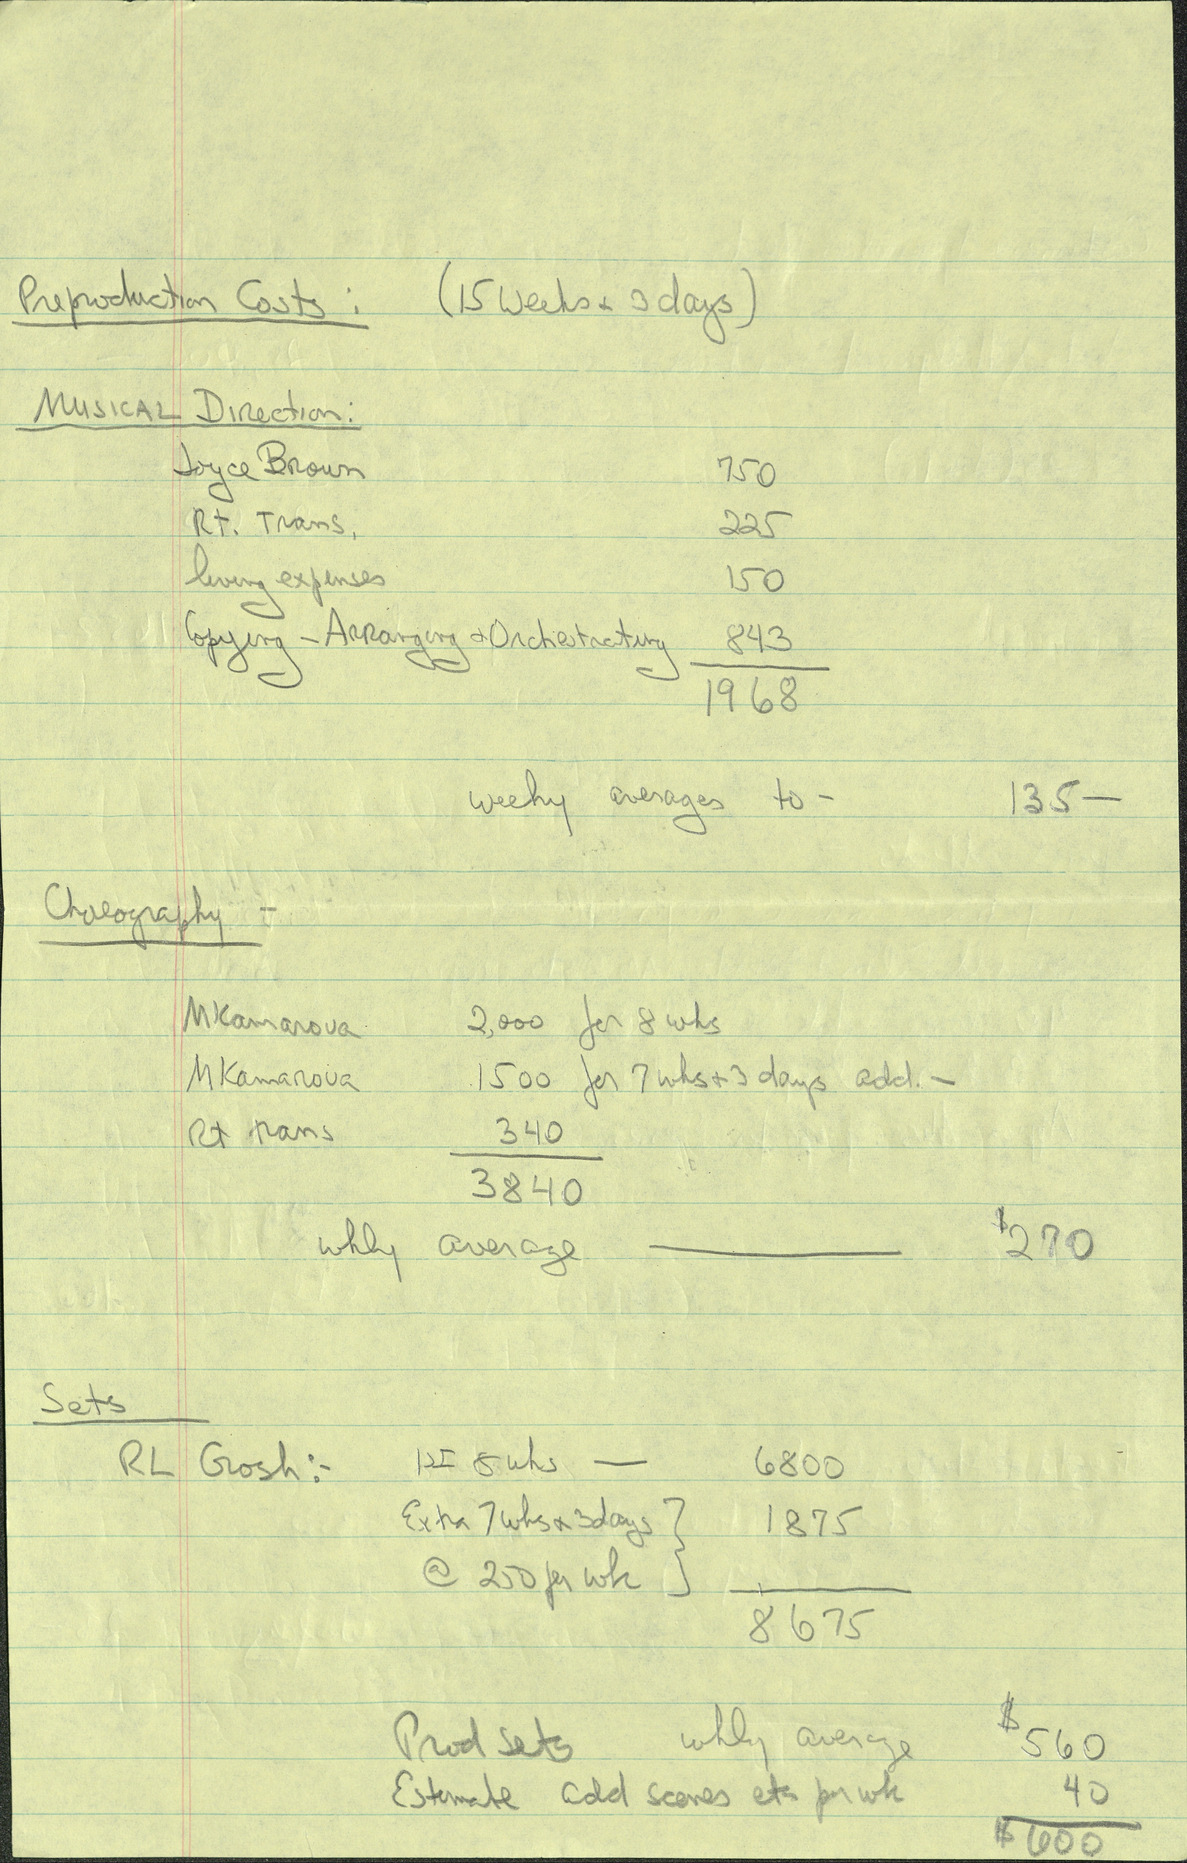 Preproduction Costs: (15 Weeks & 3 days)
MUSICAL Direction:
Joyce Brown 750
Rt. Trans. 225
living expenses 150
Copying - Arranging & Orchestrating 843
1968
weekly averages to - 135—
Choreography -
MKamarova 2,000 for 8 wks
MKamarova 1500 for 7 wks + 3 days add. -
Rt trans 340
3840
wkly average — $270
Sets
RL Grosh:- 1st 8 wks — 6800
Extra 7 wks & 3 days } 1875
@ 250 per wk }
8675
Prod sets wkly average $560
Estimate add scenes etc per wk 40
$600